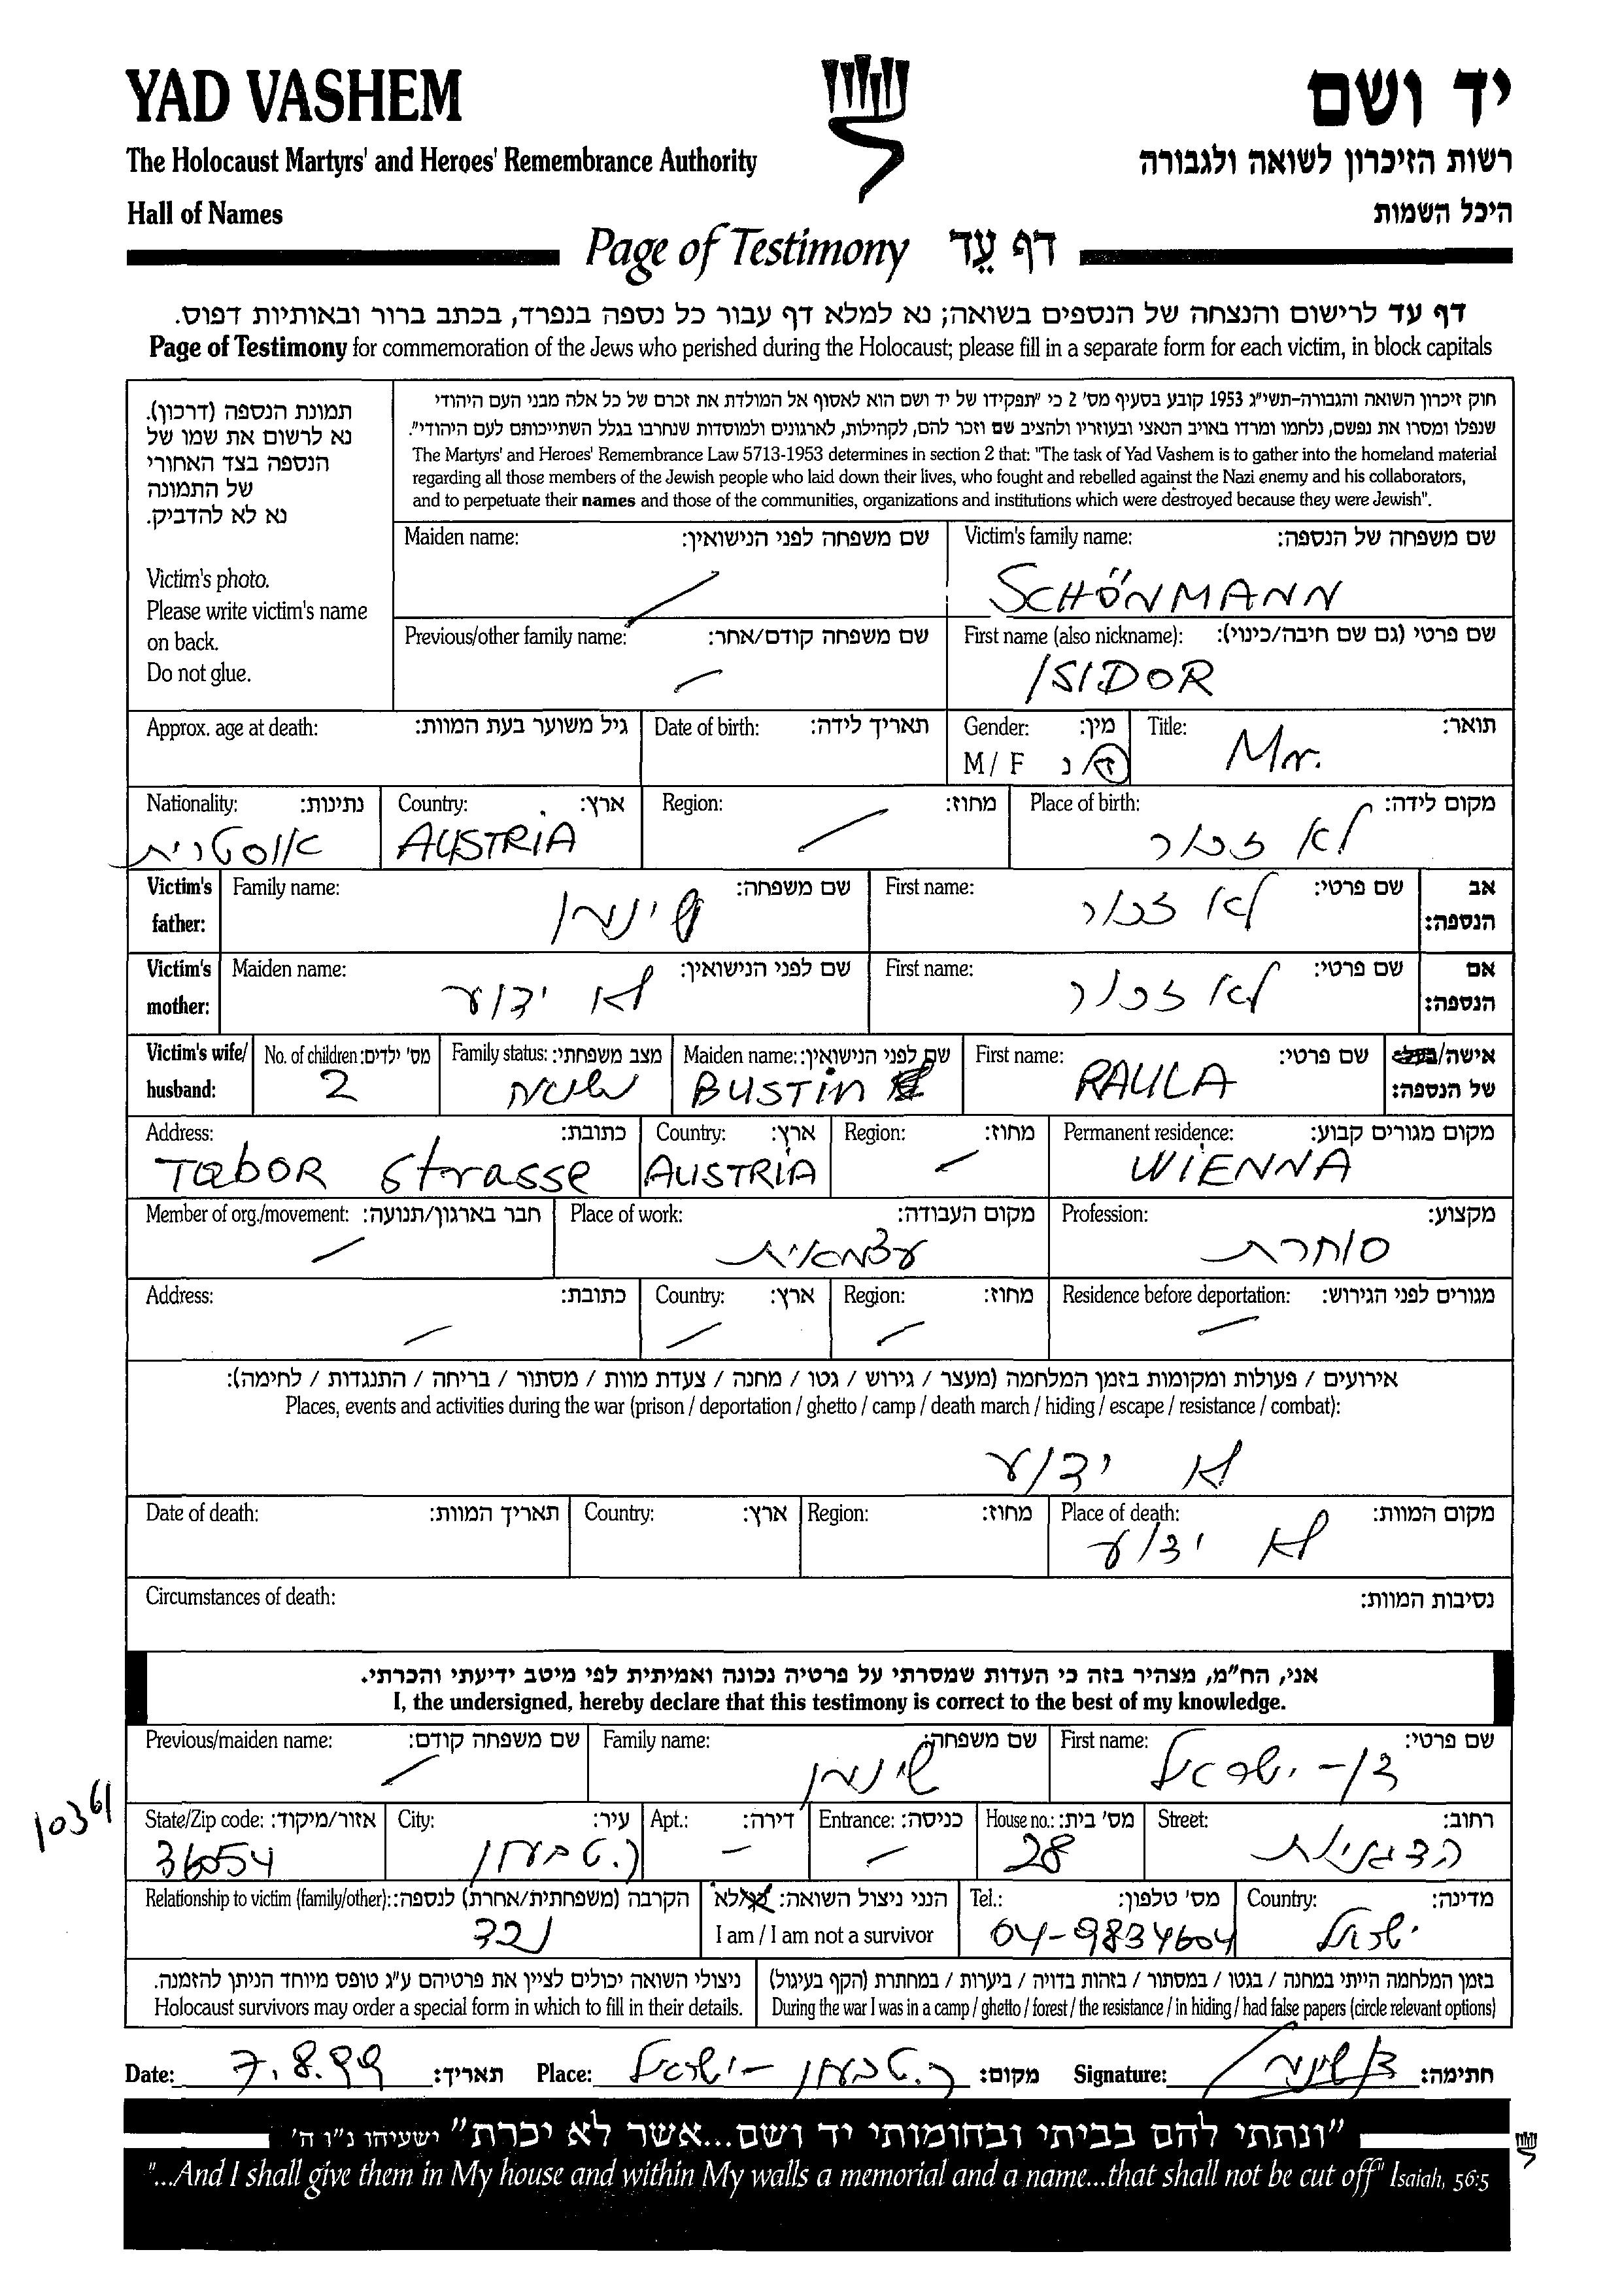 YAD VASHEM
יד ושם
The Holocaust Martyrs' and Heroes' Remembrance Authority
רשות הזיכרון לשואה ולגבורה
Hall of Names
היכל השמות
Page of Testimony דף עֵד
דף עד לרישום והנצחה של הנספים בשואה; נא למלא דף עבור כל נספה בנפרד, בכתב ברור ובאותיות דפוס.
Page of Testimony for commemoration of the Jews who perished during the Holocaust; please fill in a separate form for each victim, in block capitals
תמונת הנספה (דרכון).
נא לרשום את שמו של
הנספה בצד האחורי
של התמונה
נא לא להדביק.
Victim's photo.
Please write victim's name
on back.
Do not glue.
חוק זיכרון השואה והגבורה-תשי"ג 1953 קובע בסעיף מס' 2 כי "תפקידו של יד ושם הוא לאסוף אל המולדת את זכרם של כל אלה מבני העם היהודי
שנפלו ומסרו את נפשם, נלחמו ומרדו באויב הנאצי ובעוזריו ולהציב שם וזכר להם, לקהילות, לארגונים ולמוסדות שנחרבו בגלל השתייכותם לעם היהודי".
The Martyrs' and Heroes' Remembrance Law 5713-1953 determines in section 2 that: "The task of Yad Vashem is to gather into the homeland material
regarding all those members of the Jewish people who laid down their lives, who fought and rebelled against the Nazi enemy and his collaborators,
and to perpetuate their names and those of the communities, organizations and institutions which were destroyed because they were Jewish".
Maiden name: שם משפחה לפני הנישואין:
Victim's family name: שם משפחה של הנספה:
SCHÖNMANN
Previous/other family name: שם משפחה קודם/אחר:
First name (also nickname): שם פרטי (גם שם חיבה/כינוי):
ISIDOR
Approx. age at death: גיל משוער בעת המוות:
Date of birth: תאריך לידה:
Gender: מין:
M / F ז/נ
Title: תואר:
Mr.
Nationality: נתינות:
אוסטרית
Country: ארץ:
AUSTRIA
Region: מחוז:
Place of birth: מקום לידה:
לא זכור
Victim's father:
Family name: שם משפחה:
שינמן
First name: שם פרטי:
לא זכור
אב הנספה:
Victim's mother:
Maiden name: שם לפני הנישואין:
לא ידוע
First name: שם פרטי:
לא זכור
אם הנספה:
Victim's wife/ husband:
No. of children: מס' ילדים:
2
Family status: מצב משפחתי:
נשוי
Maiden name: שם לפני הנישואין:
BUSTIN
First name: שם פרטי:
RAULA
אישה/בעל של הנספה:
Address: כתובת:
TaBOR Strasse
Country: ארץ:
AUSTRIA
Region: מחוז:
Permanent residence: מקום מגורים קבוע:
WIENNA
Member of org./movement: חבר בארגון/תנועה:
Place of work: מקום העבודה:
עצמאית
Profession: מקצוע:
סוחרת
Address: כתובת:
Country: ארץ:
Region: מחוז:
Residence before deportation: מגורים לפני הגירוש:
אירועים / פעולות ומקומות בזמן המלחמה (מעצר / גירוש / גטו / מחנה / צעדת מוות / מסתור / בריחה / התנגדות / לחימה):
Places, events and activities during the war (prison / deportation / ghetto / camp / death march / hiding / escape / resistance / combat):
לא ידוע
Date of death: תאריך המוות:
Country: ארץ:
Region: מחוז:
Place of death: מקום המוות:
לא ידוע
Circumstances of death: נסיבות המוות:
אני, הח"מ, מצהיר בזה כי העדות שמסרתי על פרטיה נכונה ואמיתית לפי מיטב ידיעתי והכרתי.
I, the undersigned, hereby declare that this testimony is correct to the best of my knowledge.
Previous/maiden name: שם משפחה קודם:
Family name: שם משפחה:
שינמן
First name: שם פרטי:
דן-ישראל
10361
State/Zip code: אזור/מיקוד:
36054
City: עיר:
ק.טבעון
Apt.: דירה:
Entrance: כניסה:
House no.: מס' בית:
28
Street: רחוב:
הדגניות
Relationship to victim (family/other): הקרבה (משפחתית/אחרת) לנספה:
נכד
הנני ניצול השואה: לא
I am / I am not a survivor
Tel.: מס' טלפון:
04-9834604
Country: מדינה:
ישראל
ניצולי השואה יכולים לציין את פרטיהם ע"ג טופס מיוחד הניתן להזמנה.
Holocaust survivors may order a special form in which to fill in their details.
בזמן המלחמה הייתי במחנה / בגטו / במסתור / בזהות בדויה / ביערות / במחתרת (הקף בעיגול)
During the war I was in a camp / ghetto / forest / the resistance / in hiding / had false papers (circle relevant options)
Date: 7.8.99 תאריך: Place: ק.טבעון - ישראל מקום: Signature: חתימה:
"ונתתי להם בביתי ובחומותי יד ושם...אשר לא יכרת" ישעיהו נ"ו ה'
"...And I shall give them in My house and within My walls a memorial and a name...that shall not be cut off" Isaiah, 56:5